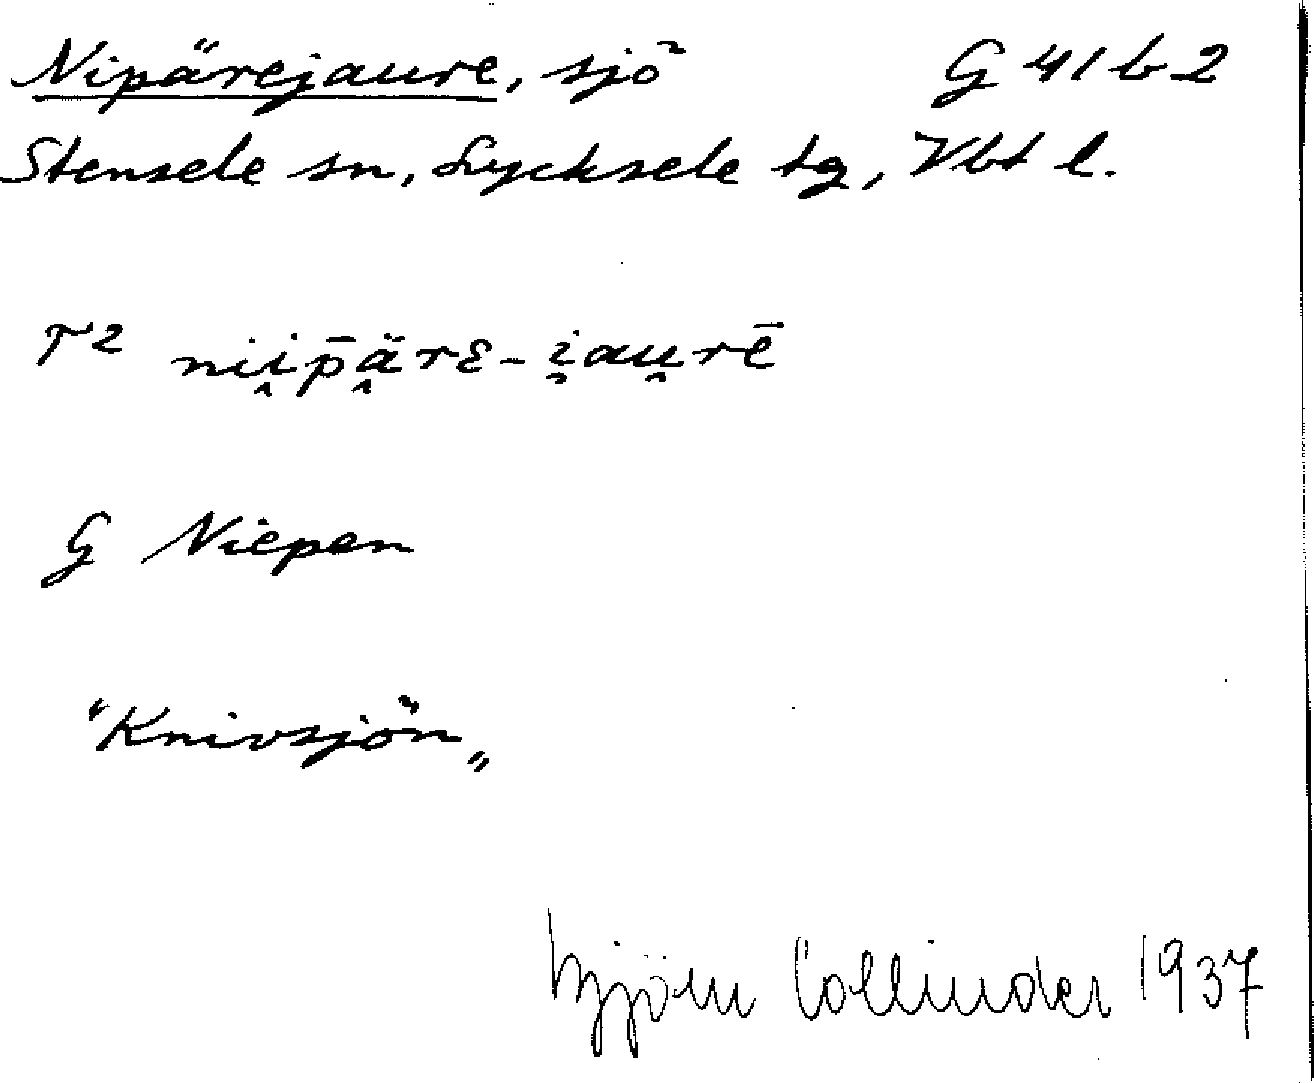 Nipärejaure, sjö G 41 b 2
Stensele sn, Lycksele tg, Vbt l.
T2 nii̭p̄ä̭rɛ-i̯au̯rē
G Niepen
"Knivsjön„
Björn Collinder 1937